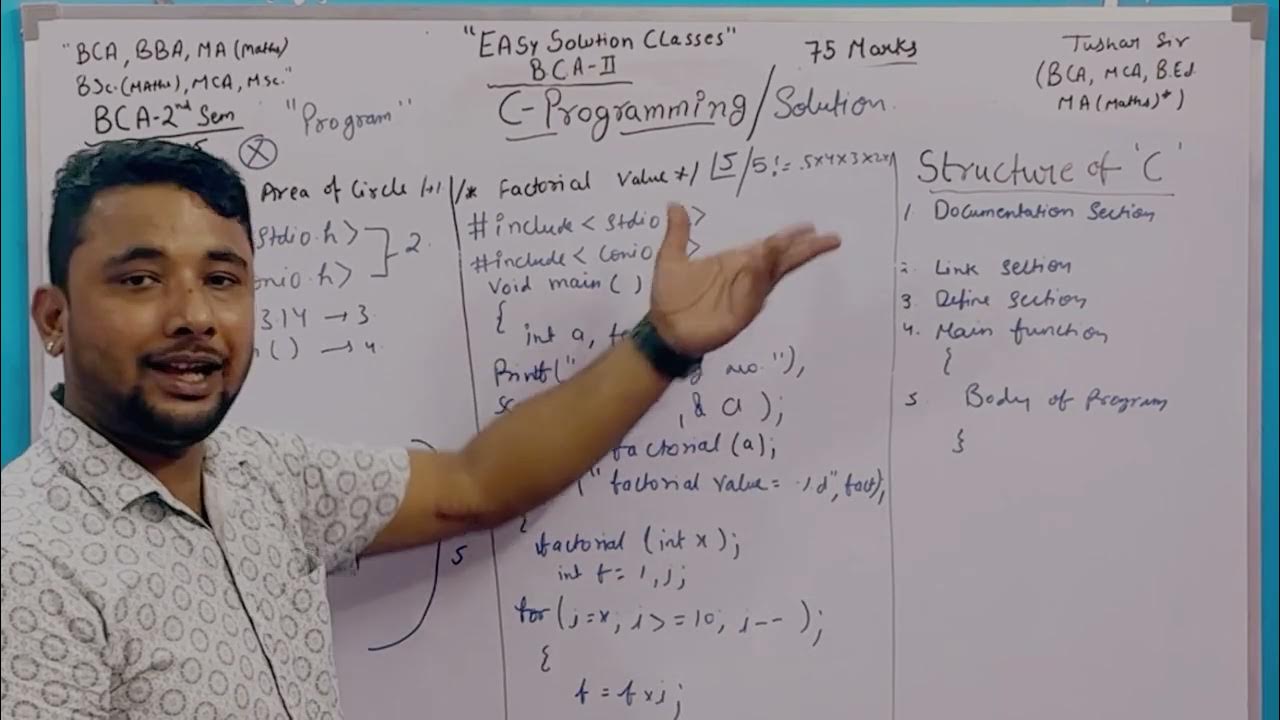 "BCA, BBA, MA (Maths)
BSc. (Maths), MCA, MSc."
BCA-2nd Sem
"Program"
"EASy Solution Classes"
BCA-II
C-Programming/Solution
75 Marks
Tushar Sir
(BCA, MCA, B.Ed.
MA (Maths)*)
Area of Circle
stdio.h> 2.
onio.h>
3.14 → 3.
( ) → 4.
5
/* Factorial value */ |5 / 5! = 5x4x3x2x1
#include < stdio >
#include < Conio >
Void main ( )
{
int a,
Printf(" no."),
, & a );
factorial (a);
(" factorial value = %d", fact),
factorial (int x);
int f = 1, j;
for (j=x; j>=10; j-- );
{
f = f x j;
Structure of 'C'
1. Documentation Section
2. Link Section
3. Define Section
4. Main function
{
5. Body of Program
}